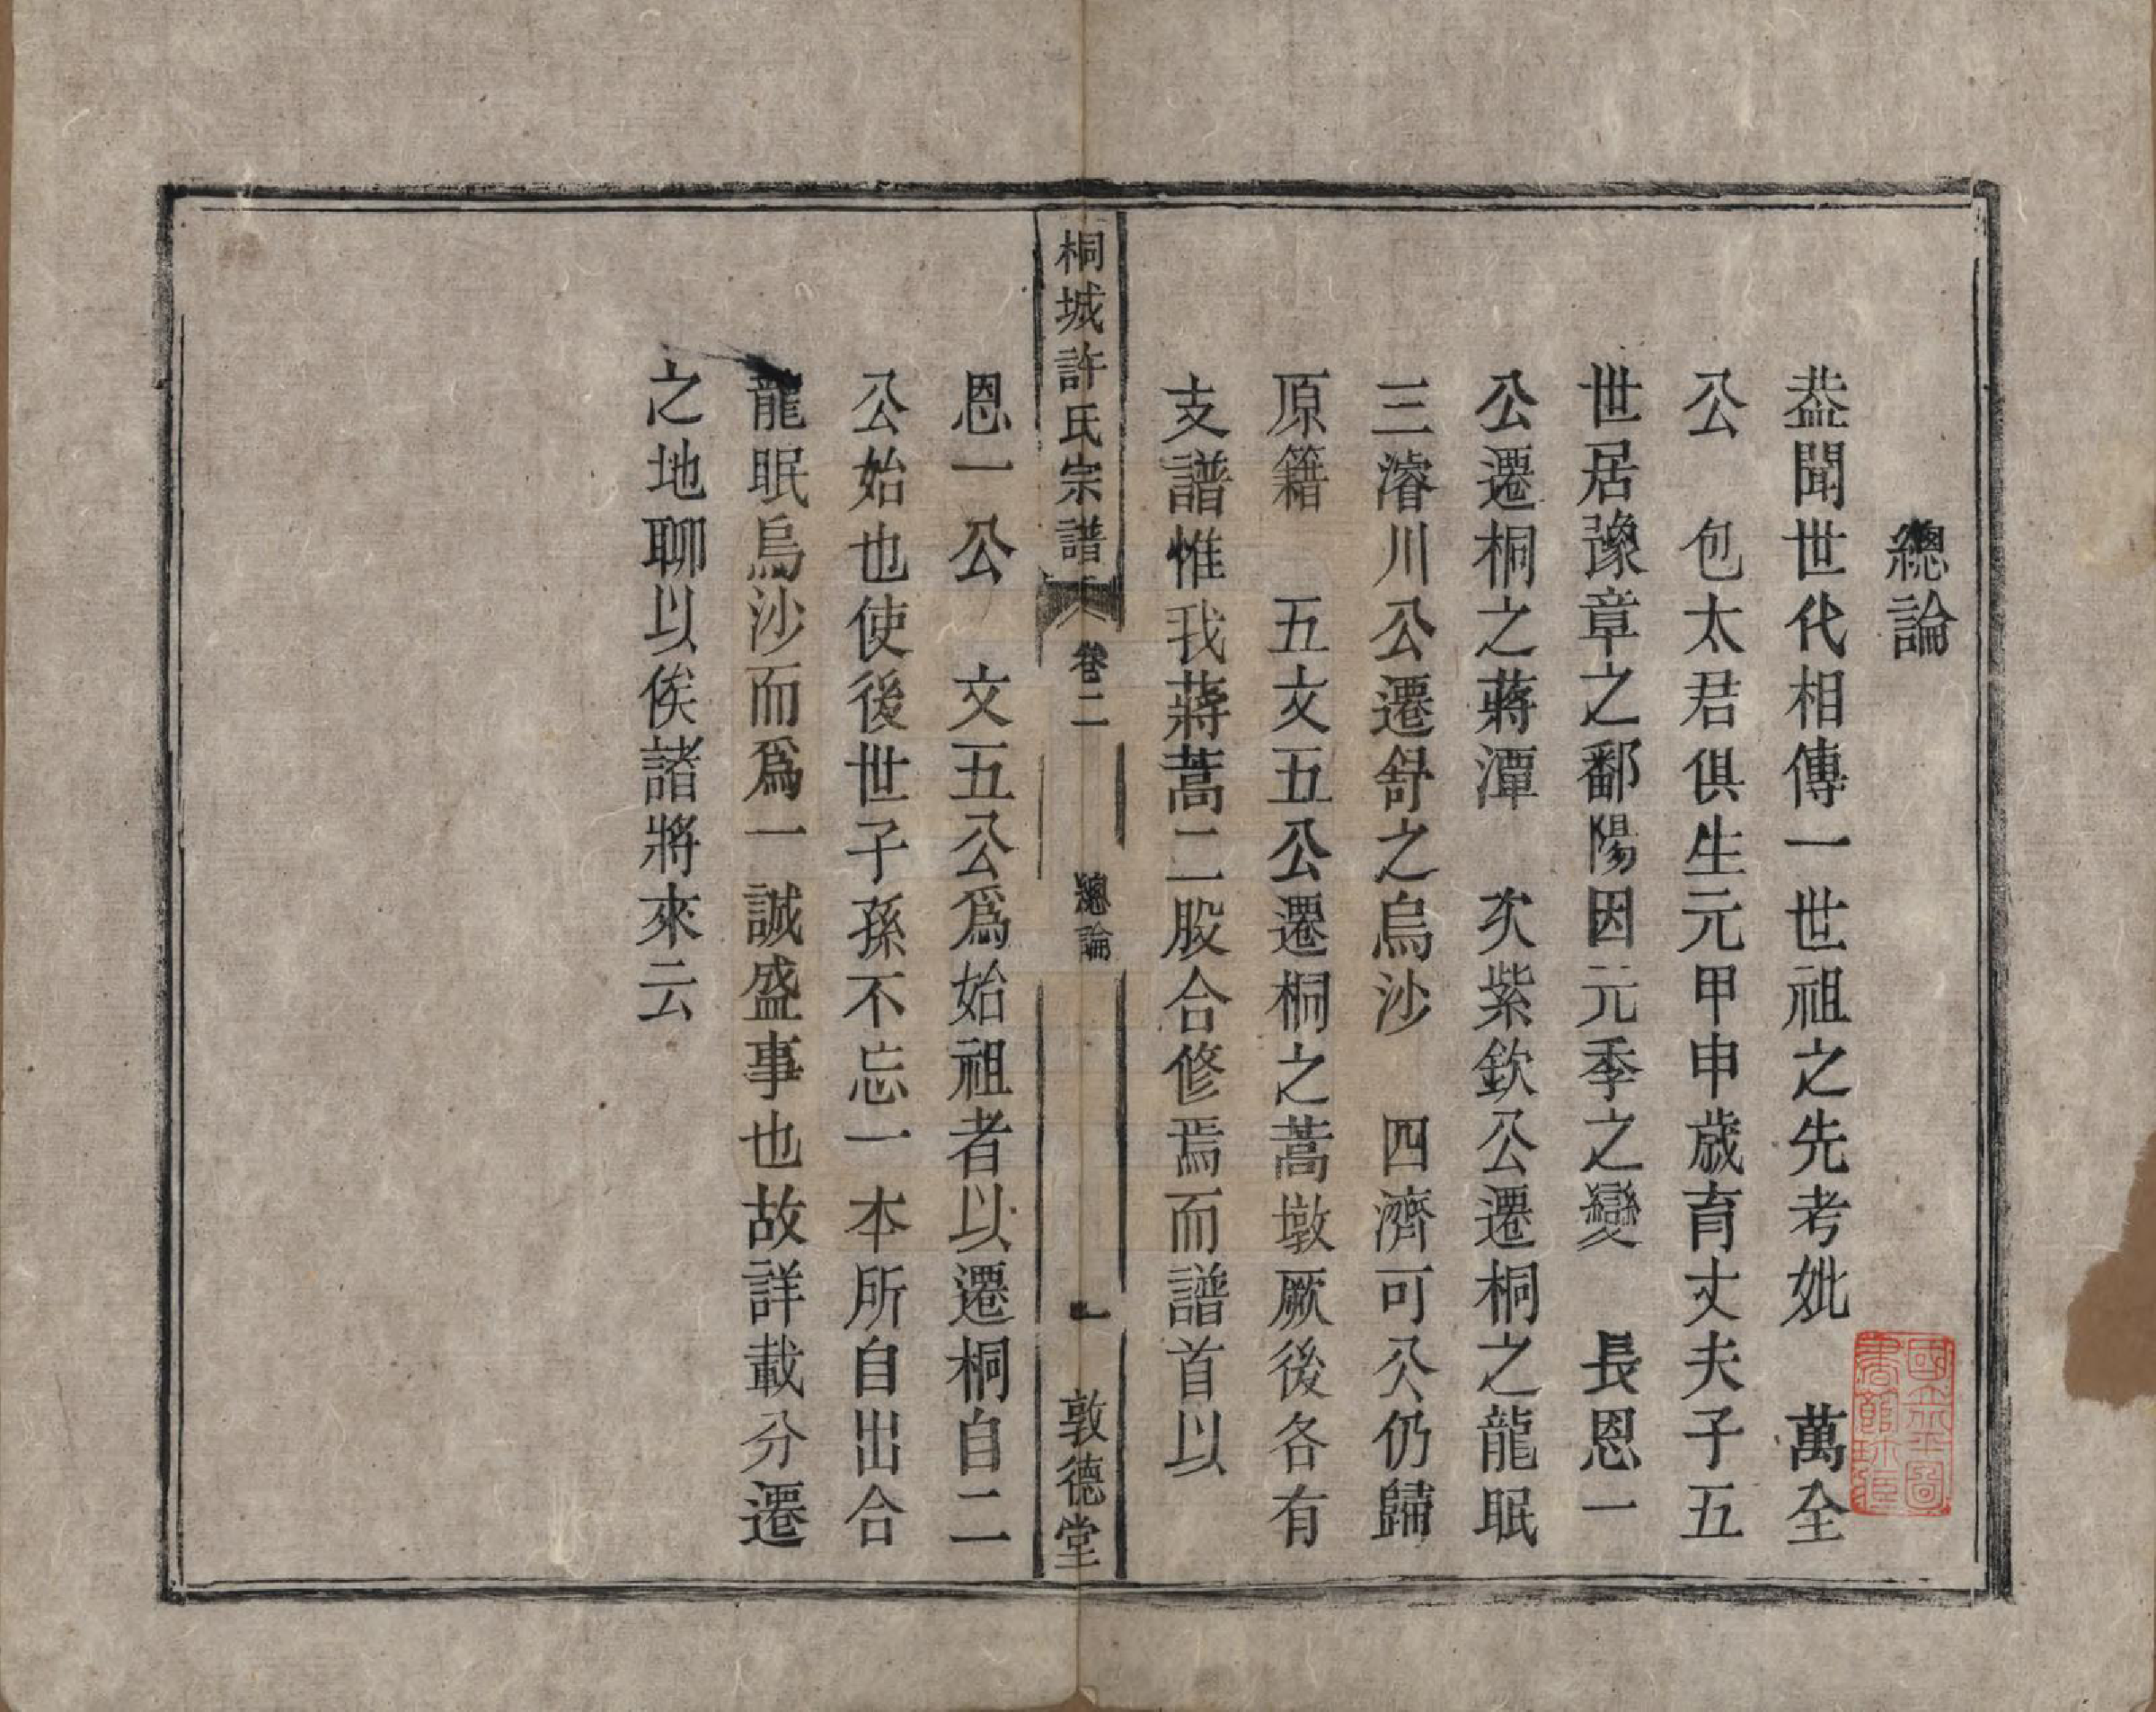 總論
葢聞世代相傳一世祖之先考妣　萬全
公　包太君俱生元甲申歲育丈夫子五
世居豫章之鄱陽因元季之變　長恩一
公遷桐之蔣潭　次紫欽公遷桐之龍眠
三濬川公遷舒之烏沙　四濟可公仍歸
原籍　五文五公遷桐之蒿墩厥後各有
支譜惟我蔣蒿二股合修焉而譜首以
桐城許氏宗譜　卷二　總論　一　敦德堂
恩一公　文五公爲始祖者以遷桐自二
公始也使後世子孫不忘一本所自出合
龍眠烏沙而爲一誠盛事也故詳載分遷
之地聊以俟諸將來云
國立北平圖
書館珍藏